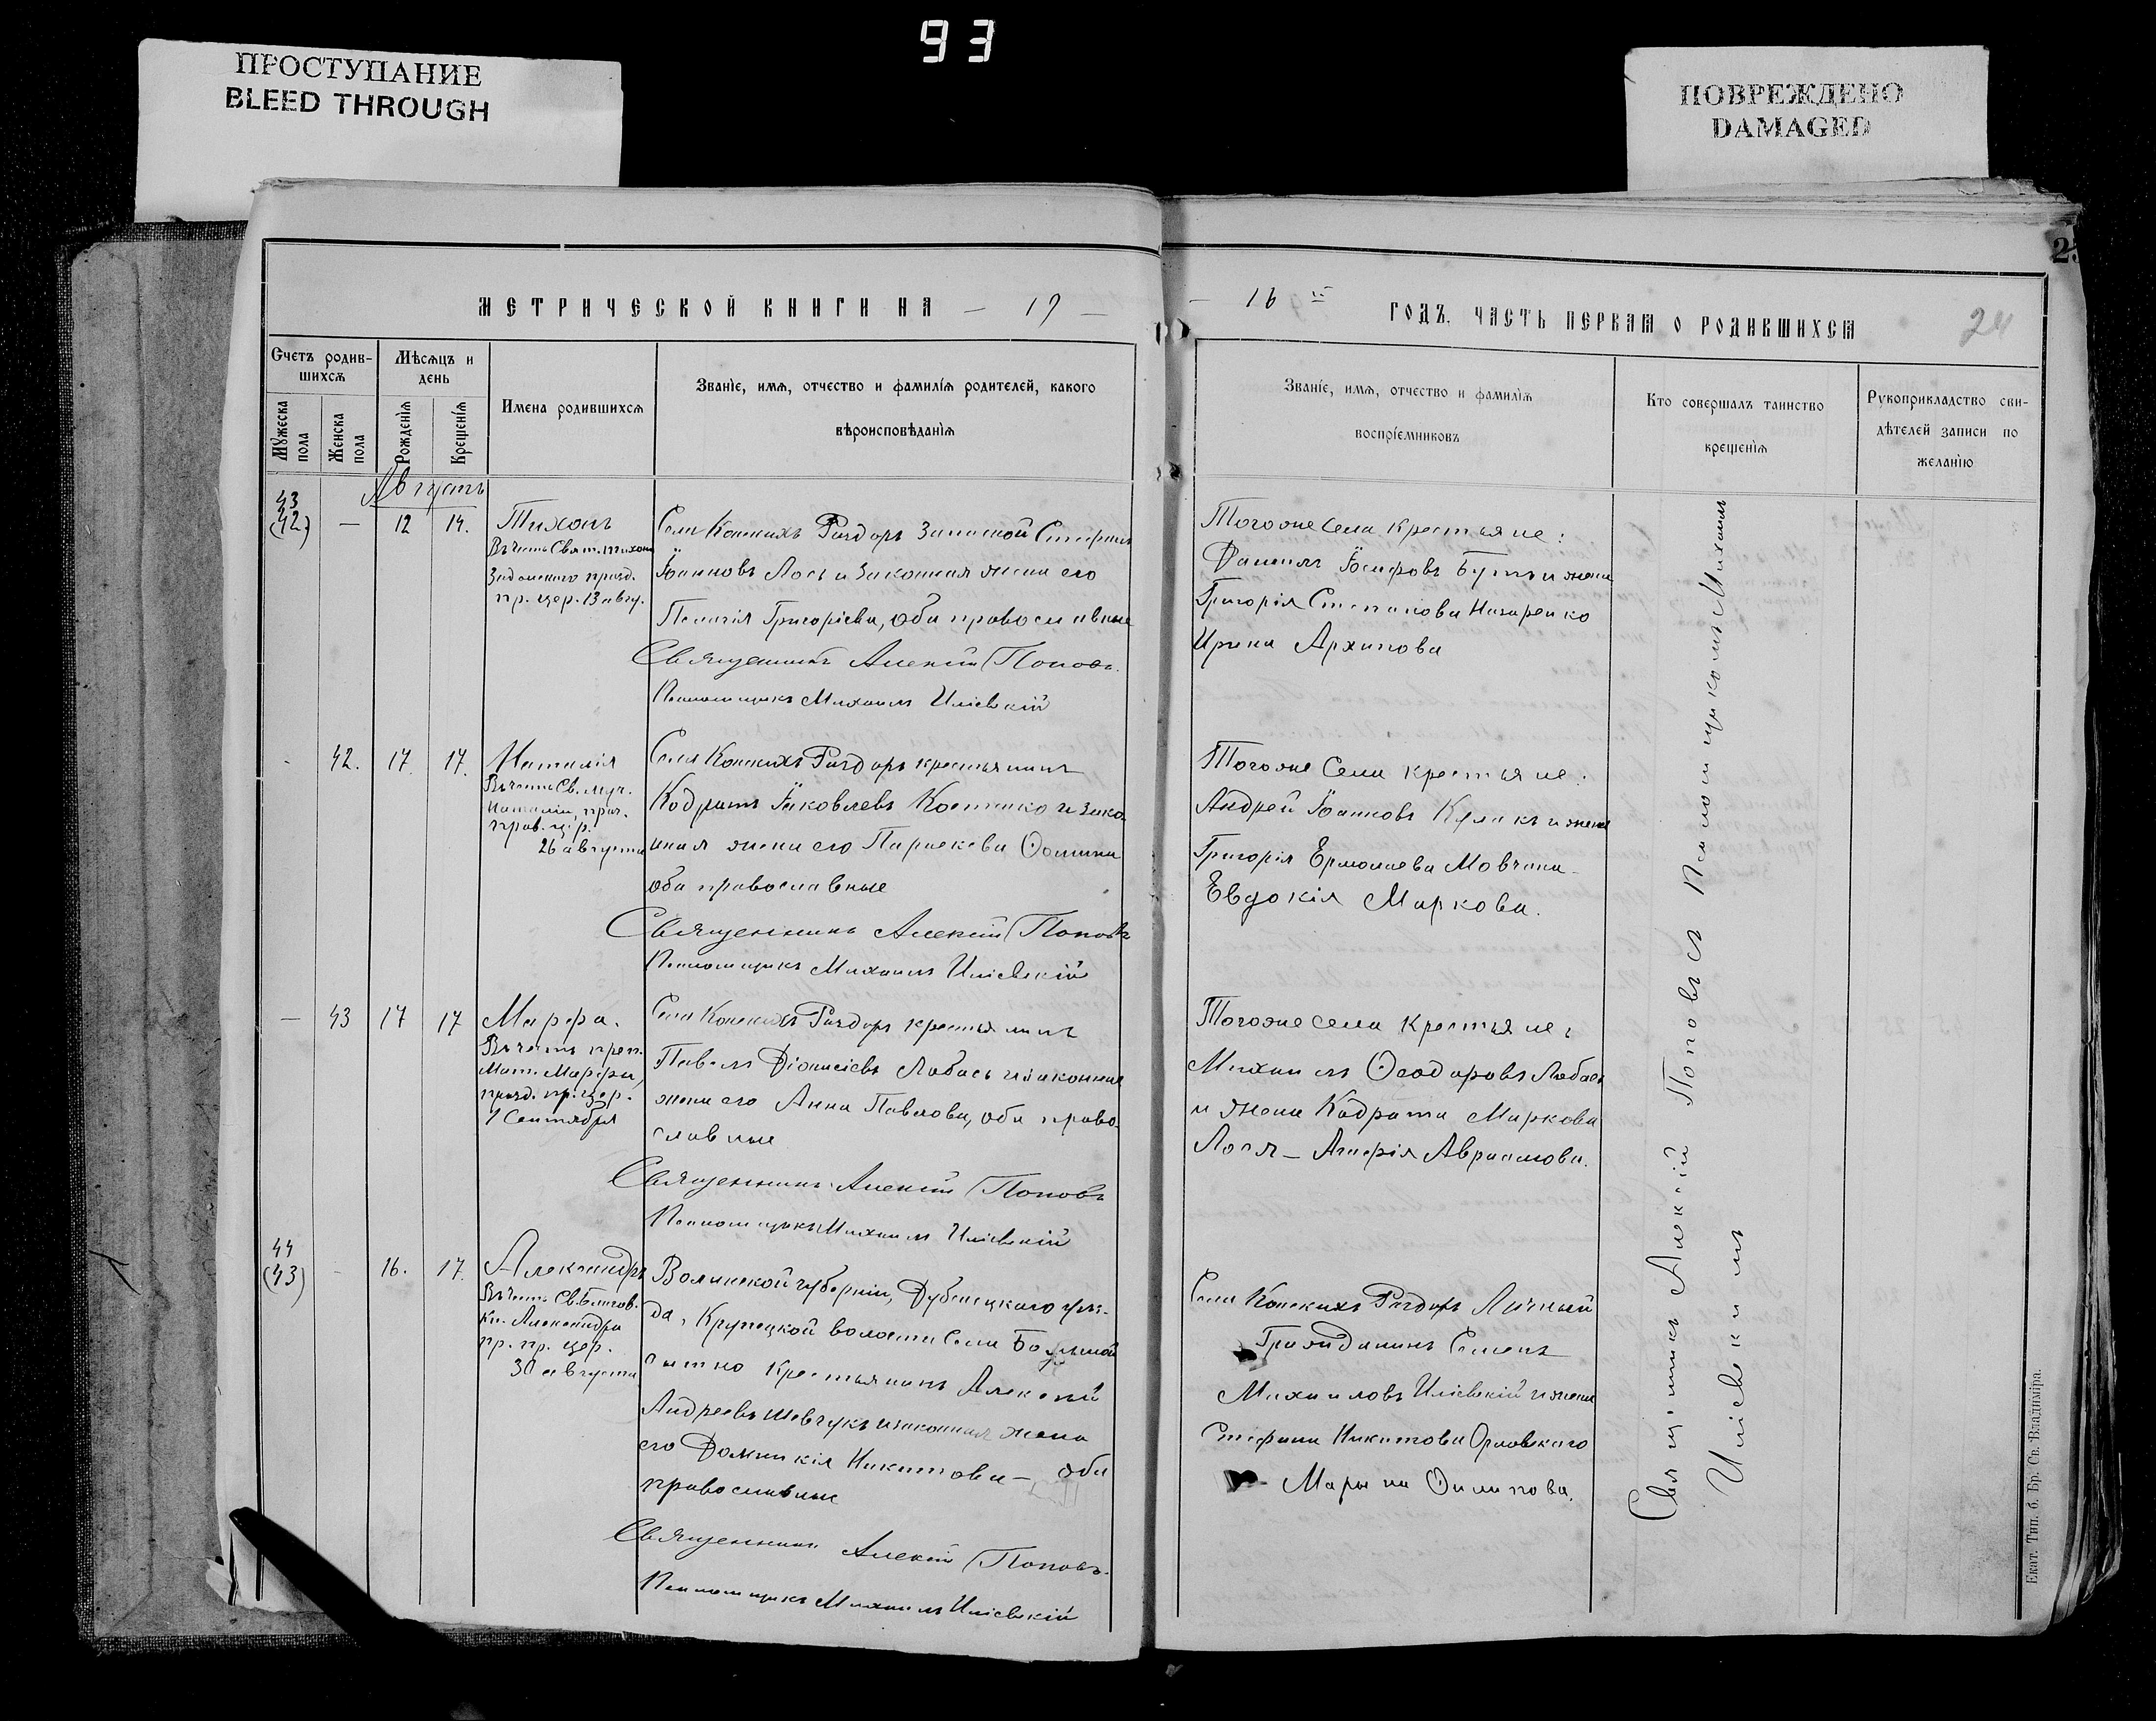 93
ПРОСТУПАНИЕ
BLEED THROUGH
ПОВРЕЖДЕНО
DAMAGED
МЕТРИЧЕСКОЙ КНИГИ НА — 19 —
Счетъ родив-
шихсѧ
Мѣсѧцъ и
день
Мужеска
пола
Женска
пола
Рожденїѧ
Крещенїѧ
Имена родившихсѧ
Званїе, имѧ, отчество и фамилїѧ родителей, какого
вѣроисповѣданїѧ
Августъ
43
(42)
—
12
14.
Тихонъ
Въ честь Свят. Тихона
Задонского празд.
пр. цер. 13 авгу.
Села Конскихъ Раздоръ Запасной Стефанъ
Іоанновъ Лось и законная жена его
Пелагія Григоріева, оба православные
Священникъ Алексій Поповъ.
Псаломщикъ Михаилъ Илісвскій
42.
17.
17.
Наталія
Въ честь Св. муч.
Наталіи, праз.
прав. цер.
26 августа
Села Конскихъ Раздоръ крестьянинъ
Кодратъ Іаковлевъ Костенко и зако-
нная жена его Параскева Ѳомина
оба православные
Священникъ Алексій Поповъ
Псаломщикъ Михаилъ Илісвскій
—
43
17
17
Марѳа.
Въ честь преп.
Мат. Марѳы,
празд. пр. цер.
1 Сентября
Села Конскихъ Раздоръ крестьянинъ
Павелъ Діонисіевъ Лабась и законная
жена его Анна Павлова, оба право-
славные
Священникъ Алексій Поповъ
Псаломщикъ Михаилъ Илісвскій
44
(43)
16.
17.
Александръ
Въ честь Св. Благов.
Кн. Александра
пр. пр. цер.
30 августа
Волынской губерніи, Дубенецкого уѣз-
да, Крупецкой волости Села Большой
сытно крестьянинъ Алексій
Андреевъ Шевчукъ и законная жена
его Домникія Никитова — оба
православные
Священникъ Алексій Поповъ.
Псаломщикъ Михаилъ Илісвскій
— 16 й ГОДЪ, ЧАСТЬ ПЕРВАѦ О РОДИВШИХСѦ
24
Званїе, имѧ, отчество и фамилїѧ
воспрїемниковъ
Кто совершалъ таинство
крещенїѧ
Рукоприкладство сви-
дѣтелей записи по
желанїю
Того же села крестьяне:
Даніилъ Іосифовъ Бутъ и жена
Григорія Степанова Назаренко
Ирина Архипова
Того же Села крестьяне:
Андрей Іоанновъ Кулакъ и жена
Григорія Ермолаева Мовчана
Евдокія Маркова.
Того же села крестьяне:
Михаилъ Ѳеодоровъ Лабась
и жена Кодрата Маркова
Лося — Агафія Авраамова.
Села Конскихъ Раздоръ Личный
Гражданинъ Семенъ
Михаиловъ Илісвскій и жена
Стефана Никитова Орловского
Марына Филипова.
Священникъ Алексій Поповъ съ Псаломщикомъ Михаиломъ
Илісвскимъ
Екат. Тип. б. Бр. Св. Владиміра.